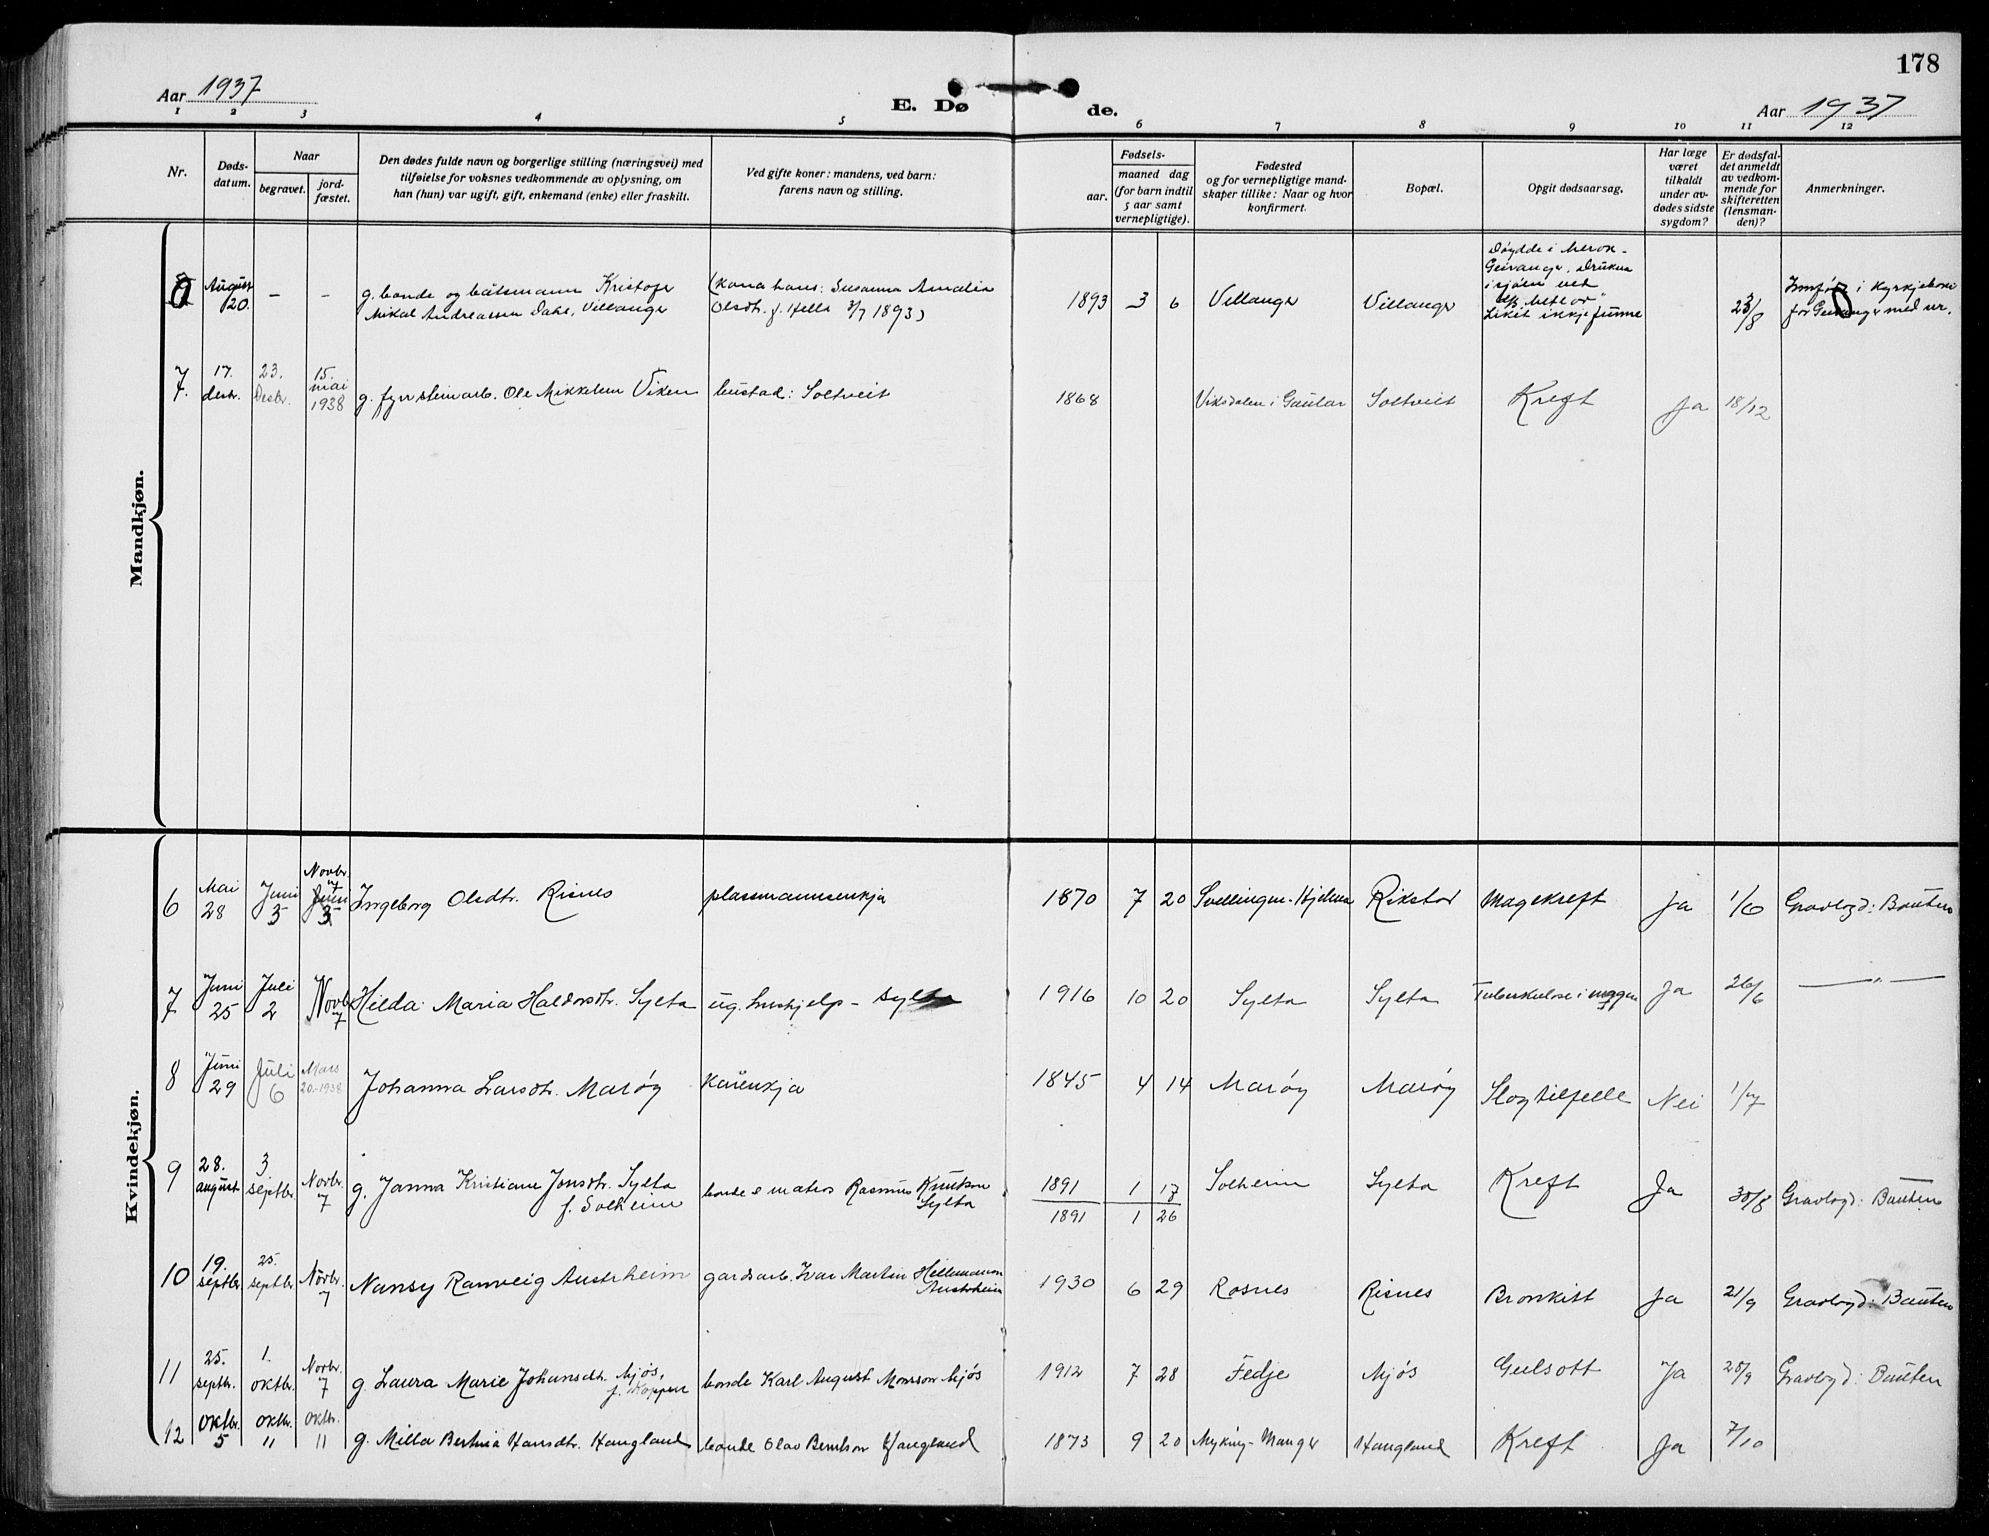 178
Aar 1937
E. Dø
de.
Aar 1937
1 2 3 4 5 6 7 8 9 10 11 12
Nr.
Døds-
datum.
Naar
begravet.
jord-
fæstet.
Den dødes fulde navn og borgerlige stilling (næringsvei) med
tilføielse for voksnes vedkommende av oplysning, om
han (hun) var ugift, gift, enkemand (enke) eller fraskilt.
Ved gifte koner: mandens, ved barn:
farens navn og stilling.
Fødsels-
aar.
maaned dag
(for barn indtil
5 aar samt
vernepligtige).
Fødested
og for vernepligtige mand-
skaper tillike: Naar og hvor
konfirmert.
Bopæl.
Opgit dødsaarsag.
Har læge
været
tilkaldt
under av-
dødes sidste
sygdom?
Er dødsfal-
det anmeldt
av vedkom-
mende for
skifteretten
(lensman-
den)?
Anmerkninger.
Mandkjøn.
August
20.
- -
g. bonde og båtsmann Kristofer
Mikal Andreassen Dahl, Villanger
(Kona hans: Susanna Amalia
Olsdtr. f. Hella 3/7 1893)
1893 3 6
Villanger
Villanger
Døydde i Merok-
Geiranger. Drukna
i sjøen ved
Liket ikkje funne
-
23/8
Innført i kyrkjeboki
for Geiranger med nr.
7.
17.
desbr.
23.
Desbr.
15.
mai
1938
g. fyrr steinarb. Ole Mikkelsen Viken
bustad: Soltveit
1868
Viksdalen i Gaular
Soltveit
Kreft
Ja
18/12
Kvindekjøn.
6
Mai
28
Juni
3
Novbr.
7
Juni
3
Ingeborg Olsdtr. Risnes
plassmannsenkja
1870 7 20
Svellingen-Hjelma
Rikstad
Magekreft
Ja
1/6
Gravlagd: Bauten
7
Juni
25
Juli
2
Novb
7
Hilda Maria Haldorsdtr. Sylta
ug. hushjelp - Sylta
1916 10 20
Sylta
Sylta
Tuberkulose i magen
Ja
26/6
— " —
8
Juni
29
Juli
6
Mars
20.-1938
Johanna Larsdtr. Marøy
Kårenkja
1845 4 14
Marøy
Marøy
Slagtilfelle
Nei
1/7
9
28.
august
3
septbr.
Novbr.
7
g. Janna Kristiane Jonsdtr. Sylta
f. Solheim
bonde & matros Rasmus Knutson
Sylta
1891 1 17
1891 1 26
Solheim
Sylta
Kreft
Ja
30/8
Gravlagd: Bauten
10
19.
septbr.
25.
septbr
Novbr.
7
Nansy Ranveig Austrheim
gardsarb. Ivar Martin Hellemannson
Austrheim
1930 6 29
Rosnes
Risnes
Bronkitt
Ja
21/9
Gravlagd: Bauten
11
25.
septbr.
1.
oktbr.
Novbr.
7
g. Laura Marie Johansdtr. Mjøs,
f. Koppen
bonde Karl August Monsson Mjøs
1912 7 28
Fedje
Mjøs
Gulsott
Ja
28/9
Gravlagd: Bauten
12
Oktbr.
5
oktbr.
11
oktbr.
11
g. Milla Bertina Hansdtr. Haugland
bonde Olav Berntson Haugland
1873 9 20
Myking-Manger
Haugland
Kreft
Ja
7/10